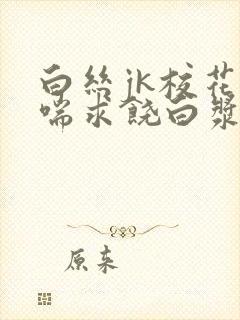 白丝jk校花
喘求饶白浆
原来